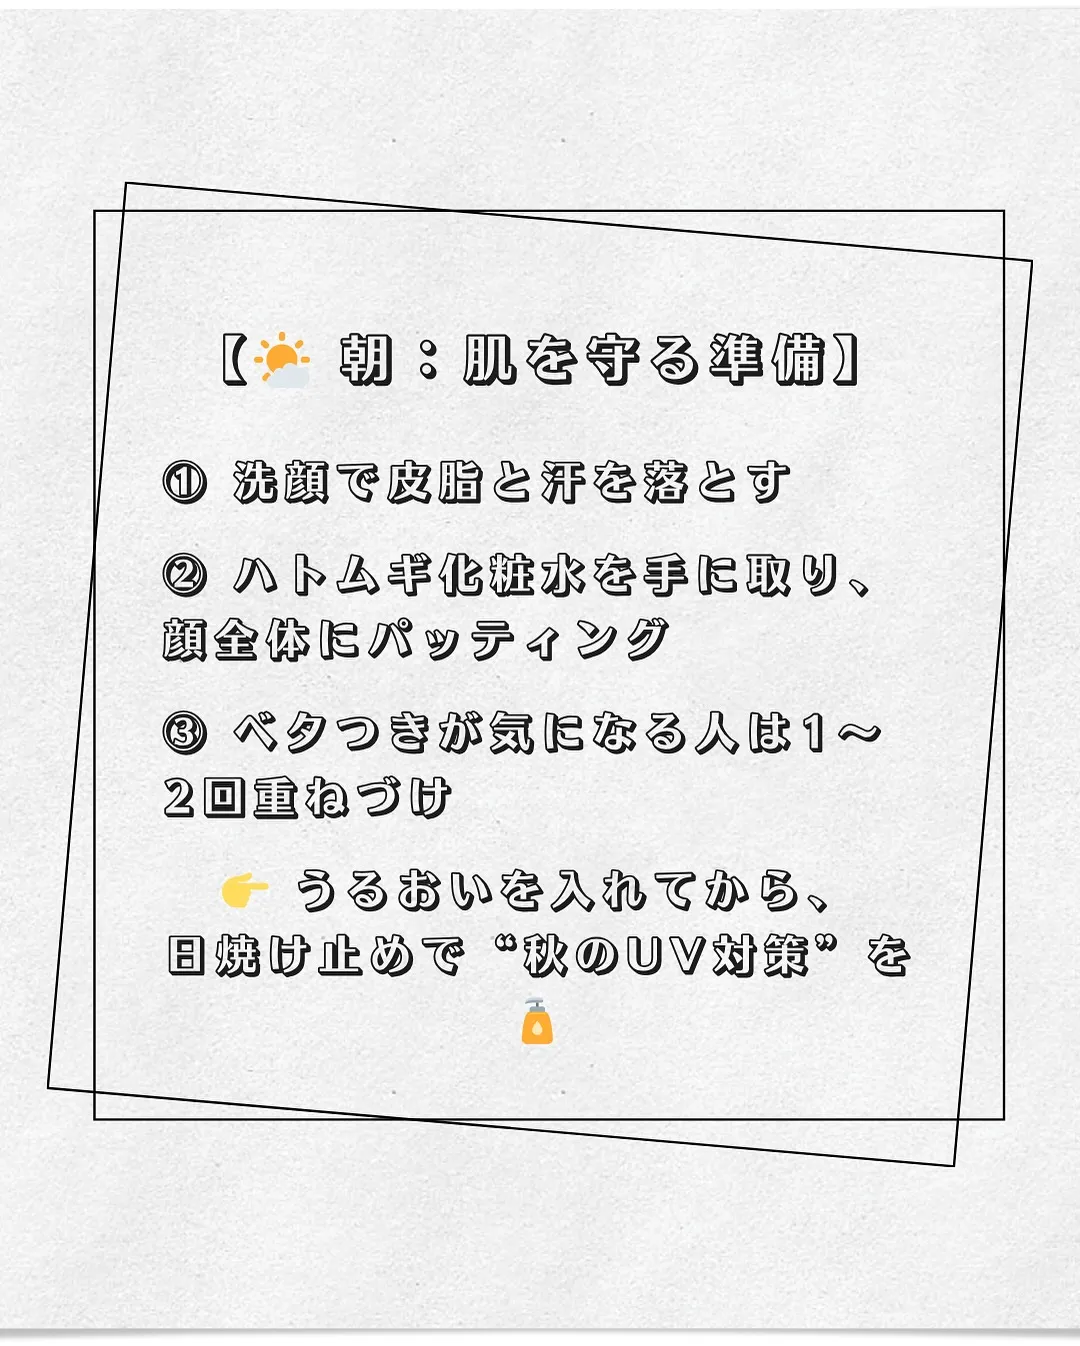 【🌤 朝：肌を守る準備】
① 洗顔で皮脂と汗を落とす
② ハトムギ化粧水を手に取り、
顔全体にパッティング
③ ベタつきが気になる人は1〜
2回重ねづけ
👉 うるおいを入れてから、
日焼け止めで“秋のUV対策”を
🧴